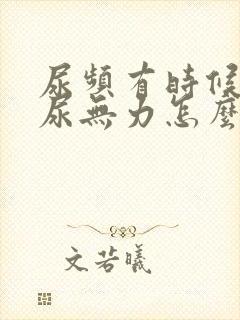 尿頻有時候
尿無力怎麼
文若曦